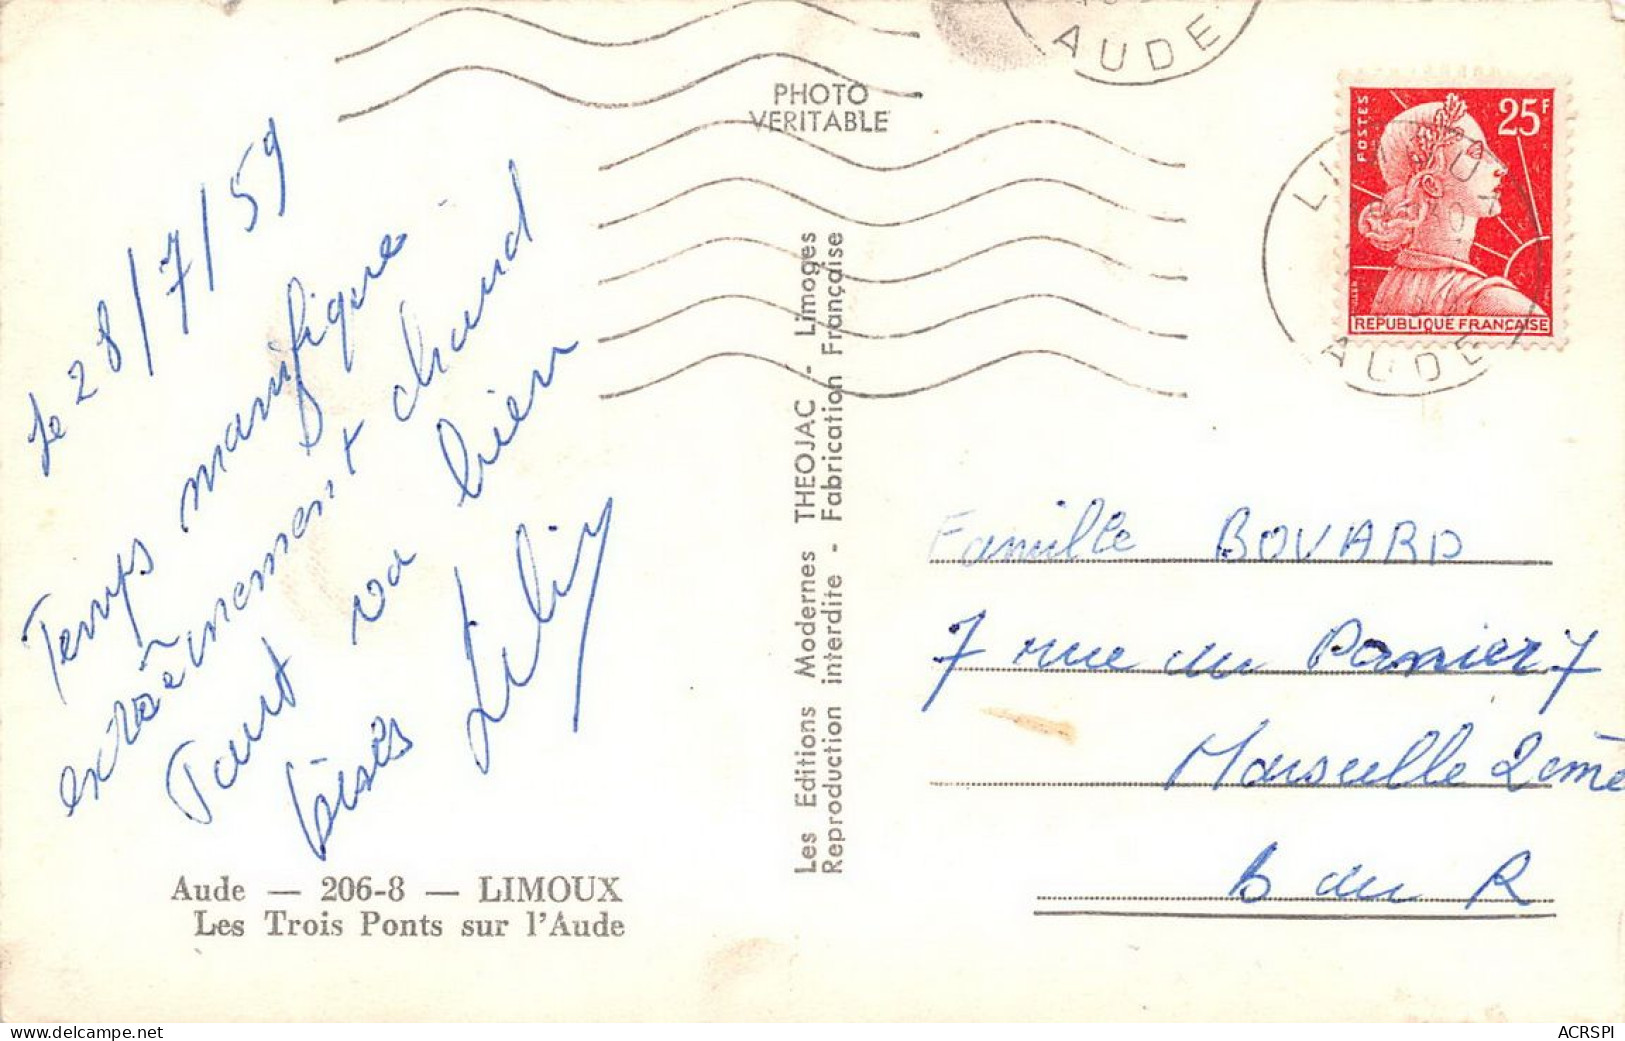 AUDE
PHOTO
VERITABLE
POSTES
25F
REPUBLIQUE FRANÇAISE
AUDE
le 28/7/59
Temps manifique
extrêmement chaud
Tout va bien
bises
Les Editions Modernes THEOJAC - Limoges
Reproduction interdite - Fabrication Française
Famille BOVARD
7 rue du Panier 7
Marseille 2ème
B du R
Aude — 206-8 — LIMOUX
Les Trois Ponts sur l'Aude
delcampe.net
ACRSPI